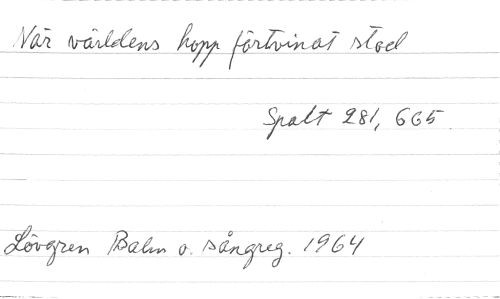 När världens hopp förtvinat stod
Spalt 281, 665
Lövgren Psalm o. sångreg. 1964